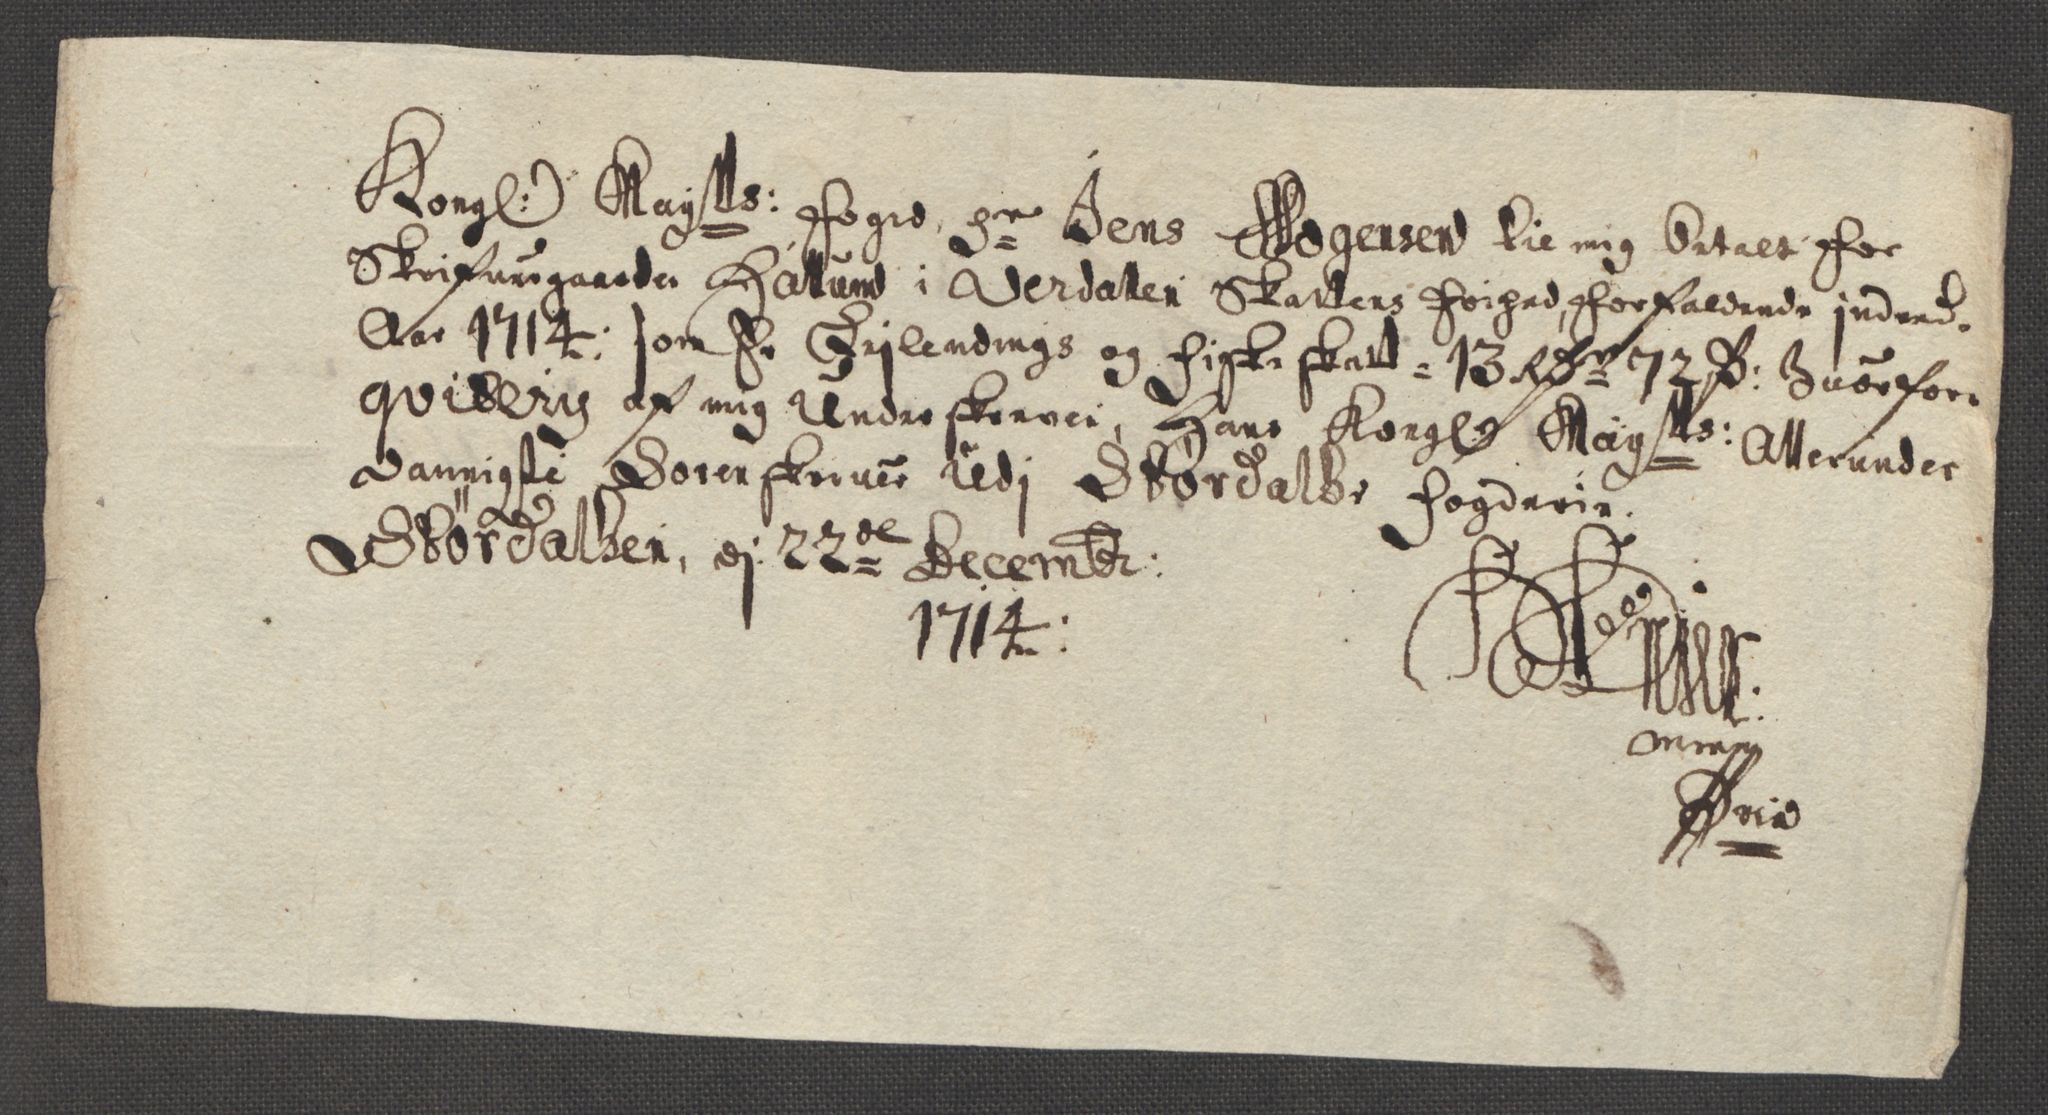 Kongl: Maÿtts: Fogd, Hr Jens Wogensen til mig betalt for
Skrifuergaarden Hallum i Verdallen Skattens Frihed, forfaldende inded.
Aar 1714: som er Leilendings og Fischeskatt = 13 Rdr 72 s: Huorfor
qviteris af mig underskrevne, Hans Kongl: Maÿtts: Allerunder
dannigste Sorenskriuer udj Størdalls fogderie.
Størdallsen, dj: 22de Decembr:
1714: